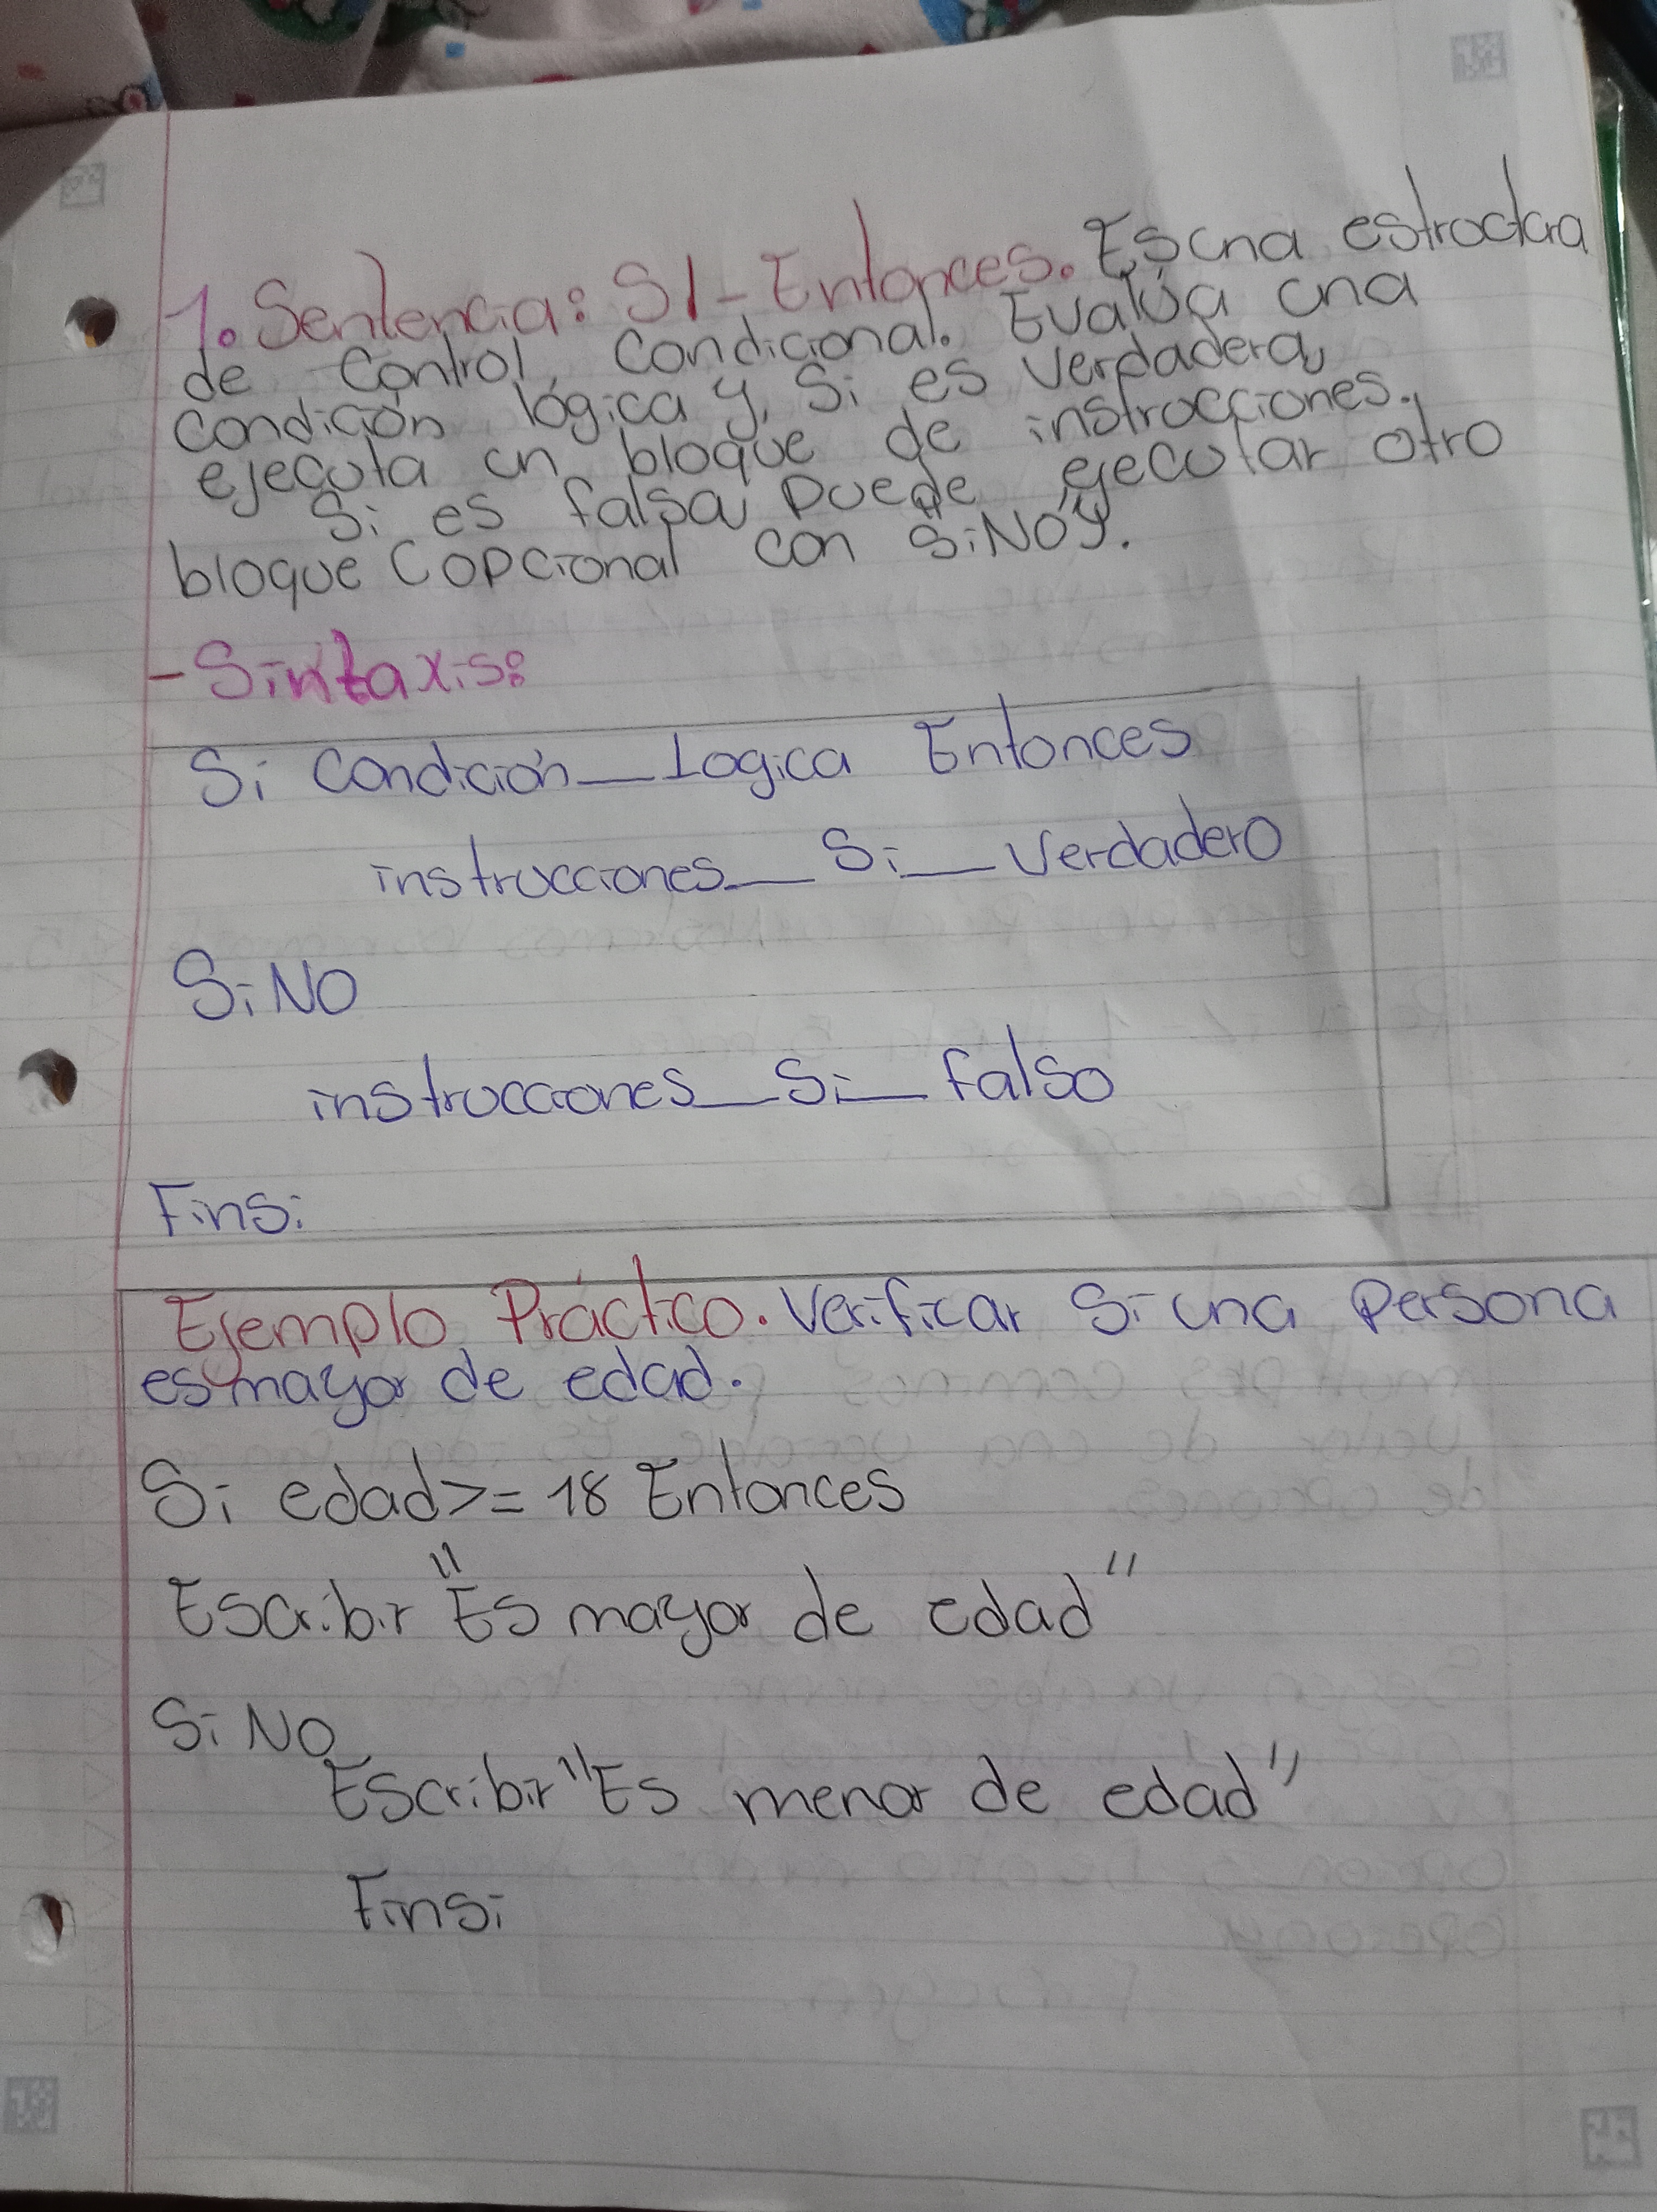 1. Sentencia: SI - Entonces. Es una estructura
de Control Condicional. Evalúa una
Condición lógica y, Si es Verdadera,
ejecuta un bloque de instrucciones.
Si es falsa, puede ejecutar otro
bloque (opcional con "SiNO").
- Sintaxis:
Si Condición_Logica Entonces
instrucciones_Si_Verdadero
SiNO
instrucciones_Si_falso
FinSi
Ejemplo Práctico. Verificar Si una Persona
es mayor de edad.
Si edad >= 18 Entonces
Escribir "Es mayor de edad"
Si NO
Escribir "Es menor de edad"
FinSi